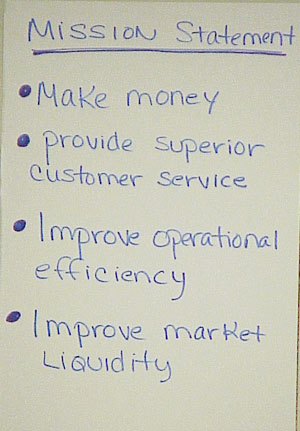 Mission Statement
• Make money
• provide superior
customer service
• Improve operational
efficiency
• Improve market
Liquidity